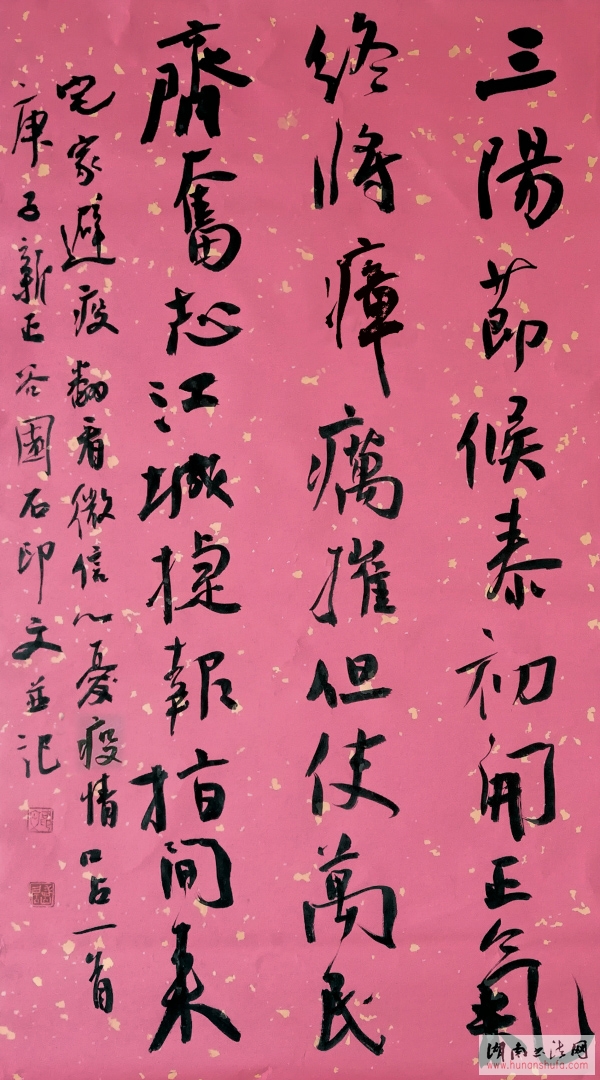 三陽節候泰初開正氣
終將瘴癘摧但使萬民
齊奮起江城捷報指間來
宅家避疫翻看微信心憂疫情口占一首
庚子新正谷園石印文並記
湖南书法网
www.hunanshufa.com